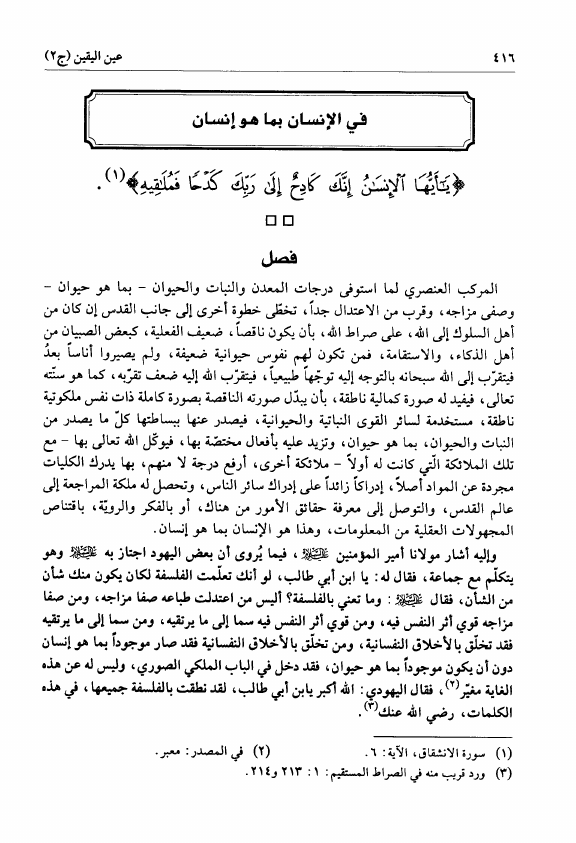 ٤١٦ عين اليقين (ج٢)
في الإنسان بما هو إنسان
﴿يَـٰٓأَيُّهَا ٱلْإِنسَـٰنُ إِنَّكَ كَادِحٌ إِلَىٰ رَبِّكَ كَدْحًا فَمُلَـٰقِيهِ﴾(١).
□ □
فصل
المركب العنصري لما استوفى درجات المعدن والنبات والحيوان - بما هو حيوان -
وصفى مزاجه، وقرب من الاعتدال جداً، تخطّى خطوة أخرى إلى جانب القدس إن كان من
أهل السلوك إلى الله، على صراط الله، بأن يكون ناقصاً، ضعيف الفعلية، كبعض الصبيان من
أهل الذكاء، والاستقامة، فمن تكون لهم نفوس حيوانية ضعيفة، ولم يصيروا أناساً بعدُ
فيتقرّب إلى الله سبحانه بالتوجه إليه توجّهاً طبيعياً، فيتقرّب الله إليه ضعف تقرّبه، كما هو سنّته
تعالى، فيفيد له صورة كمالية ناطقة، بأن يبدّل صورته الناقصة بصورة كاملة ذات نفس ملكوتية
ناطقة، مستخدمة لسائر القوى النباتية والحيوانية، فيصدر عنها ببساطتها كلّ ما يصدر من
النبات والحيوان، بما هو حيوان، وتزيد عليه بأفعال مختصّة بها، فيوكّل الله تعالى بها - مع
تلك الملائكة الّتي كانت له أولاً - ملائكة أخرى، أرفع درجة لا منهم، بها يدرك الكليات
مجردة عن المواد أصلاً، إدراكاً زائداً على إدراك سائر الناس، وتحصل له ملكة المراجعة إلى
عالم القدس، والتوصل إلى معرفة حقائق الأمور من هناك، أو بالفكر والرويّة، باقتناص
المجهولات العقلية من المعلومات، وهذا هو الإنسان بما هو إنسان.
وإليه أشار مولانا أمير المؤمنين عليه السلام، فيما يُروى أن بعض اليهود اجتاز به عليه السلام وهو
يتكلّم مع جماعة، فقال له: يا ابن أبي طالب، لو أنك تعلّمت الفلسفة لكان يكون منك شأن
من الشأن، فقال عليه السلام: وما تعني بالفلسفة؟ أليس من اعتدلت طباعه صفا مزاجه، ومن صفا
مزاجه قوي أثر النفس فيه، ومن قوي أثر النفس فيه سما إلى ما يرتقيه، ومن سما إلى ما يرتقيه
فقد تخلّق بالأخلاق النفسانية، ومن تخلّق بالأخلاق النفسانية فقد صار موجوداً بما هو إنسان
دون أن يكون موجوداً بما هو حيوان، فقد دخل في الباب الملكي الصوري، وليس له عن هذه
الغاية مغيّر(٢)، فقال اليهودي: الله أكبر يابن أبي طالب، لقد نطقت بالفلسفة جميعها، في هذه
الكلمات، رضي الله عنك(٣).
(١) سورة الانشقاق، الآية: ٦. (٢) في المصدر: معبر.
(٣) ورد قريب منه في الصراط المستقيم: ١: ٢١٣ و٢١٤.